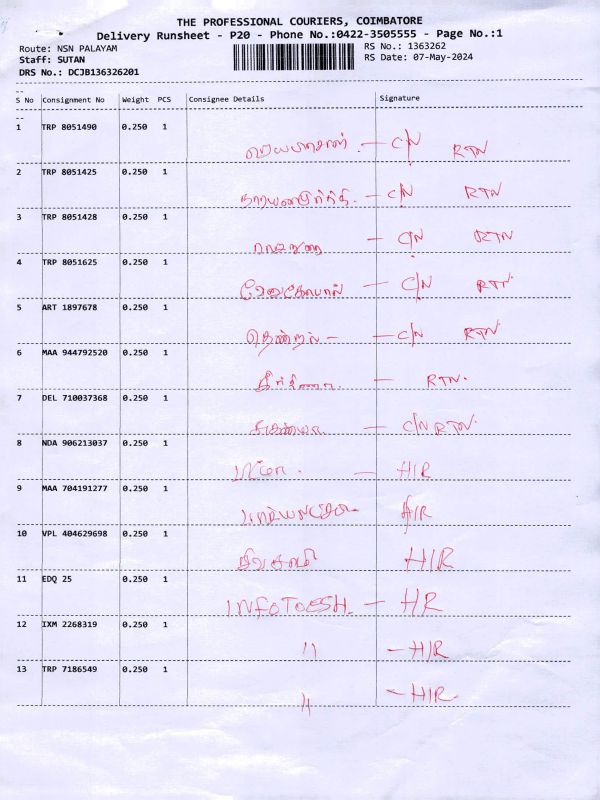 THE PROFESSIONAL COURIERS, COIMBATORE
Delivery Runsheet - P20 - Phone No.:0422-3505555 - Page No.:1
Route: NSN PALAYAM
RS No.: 1363262
Staff: SUTAN
RS Date: 07-May-2024
DRS No.: DCJB136326201
S No Consignment No Weight PCS Consignee Details Signature
1 TRP 8051490 0.250 1
— C/N RTN
2 TRP 8051425 0.250 1
நாராயணமூர்த்தி. — C/N RTN
3 TRP 8051428 0.250 1
ராஜதுரை — C/N RTN
4 TRP 8051625 0.250 1
வேணுகோபால் — C/N RTN
5 ART 1897678 0.250 1
தென்றல் — C/N RTN
6 MAA 944792520 0.250 1
— RTN.
7 DEL 710037368 0.250 1
சுகன்யா — C/N RTN.
8 NDA 906213037 0.250 1
— H/R
9 MAA 704191277 0.250 1
H/R
10 VPL 404629698 0.250 1
சிவசாமி H/R
11 EDQ 25 0.250 1
INFOTOESSH. — HR
12 IXM 2268319 0.250 1
11 — H/R
13 TRP 7186549 0.250 1
11 — H/R